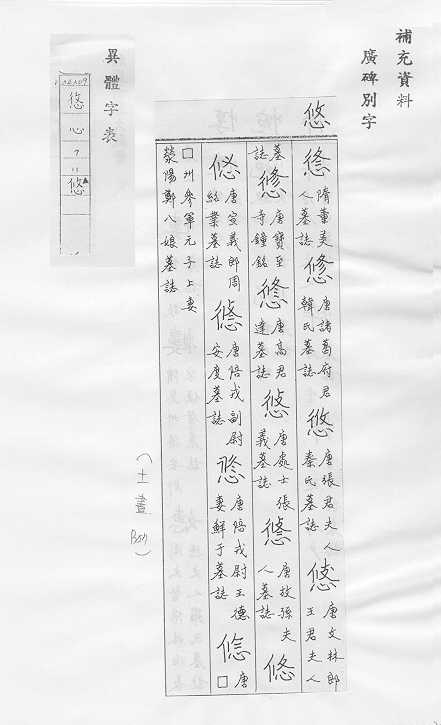 補充資料
廣碑別字
悠
悠 隋董美人墓誌 悠 唐諸葛府君韓氏墓誌 悠 唐張君夫人秦氏墓誌 悠 唐文林郎王君夫人
墓誌 悠 唐寶至寺鐘銘 悠 唐高君達墓誌 悠 唐處士張義墓誌 悠 唐故孫夫人墓誌 悠
唐宣義郎周紹業墓誌 悠 唐陪戎副尉安度墓誌 悠 唐陪戎尉王德妻鮮于墓誌 悠 唐□
□州參軍元子上妻滎陽鄭八娘墓誌
(十一畫)
異體字表
悠
心
7
11
悠